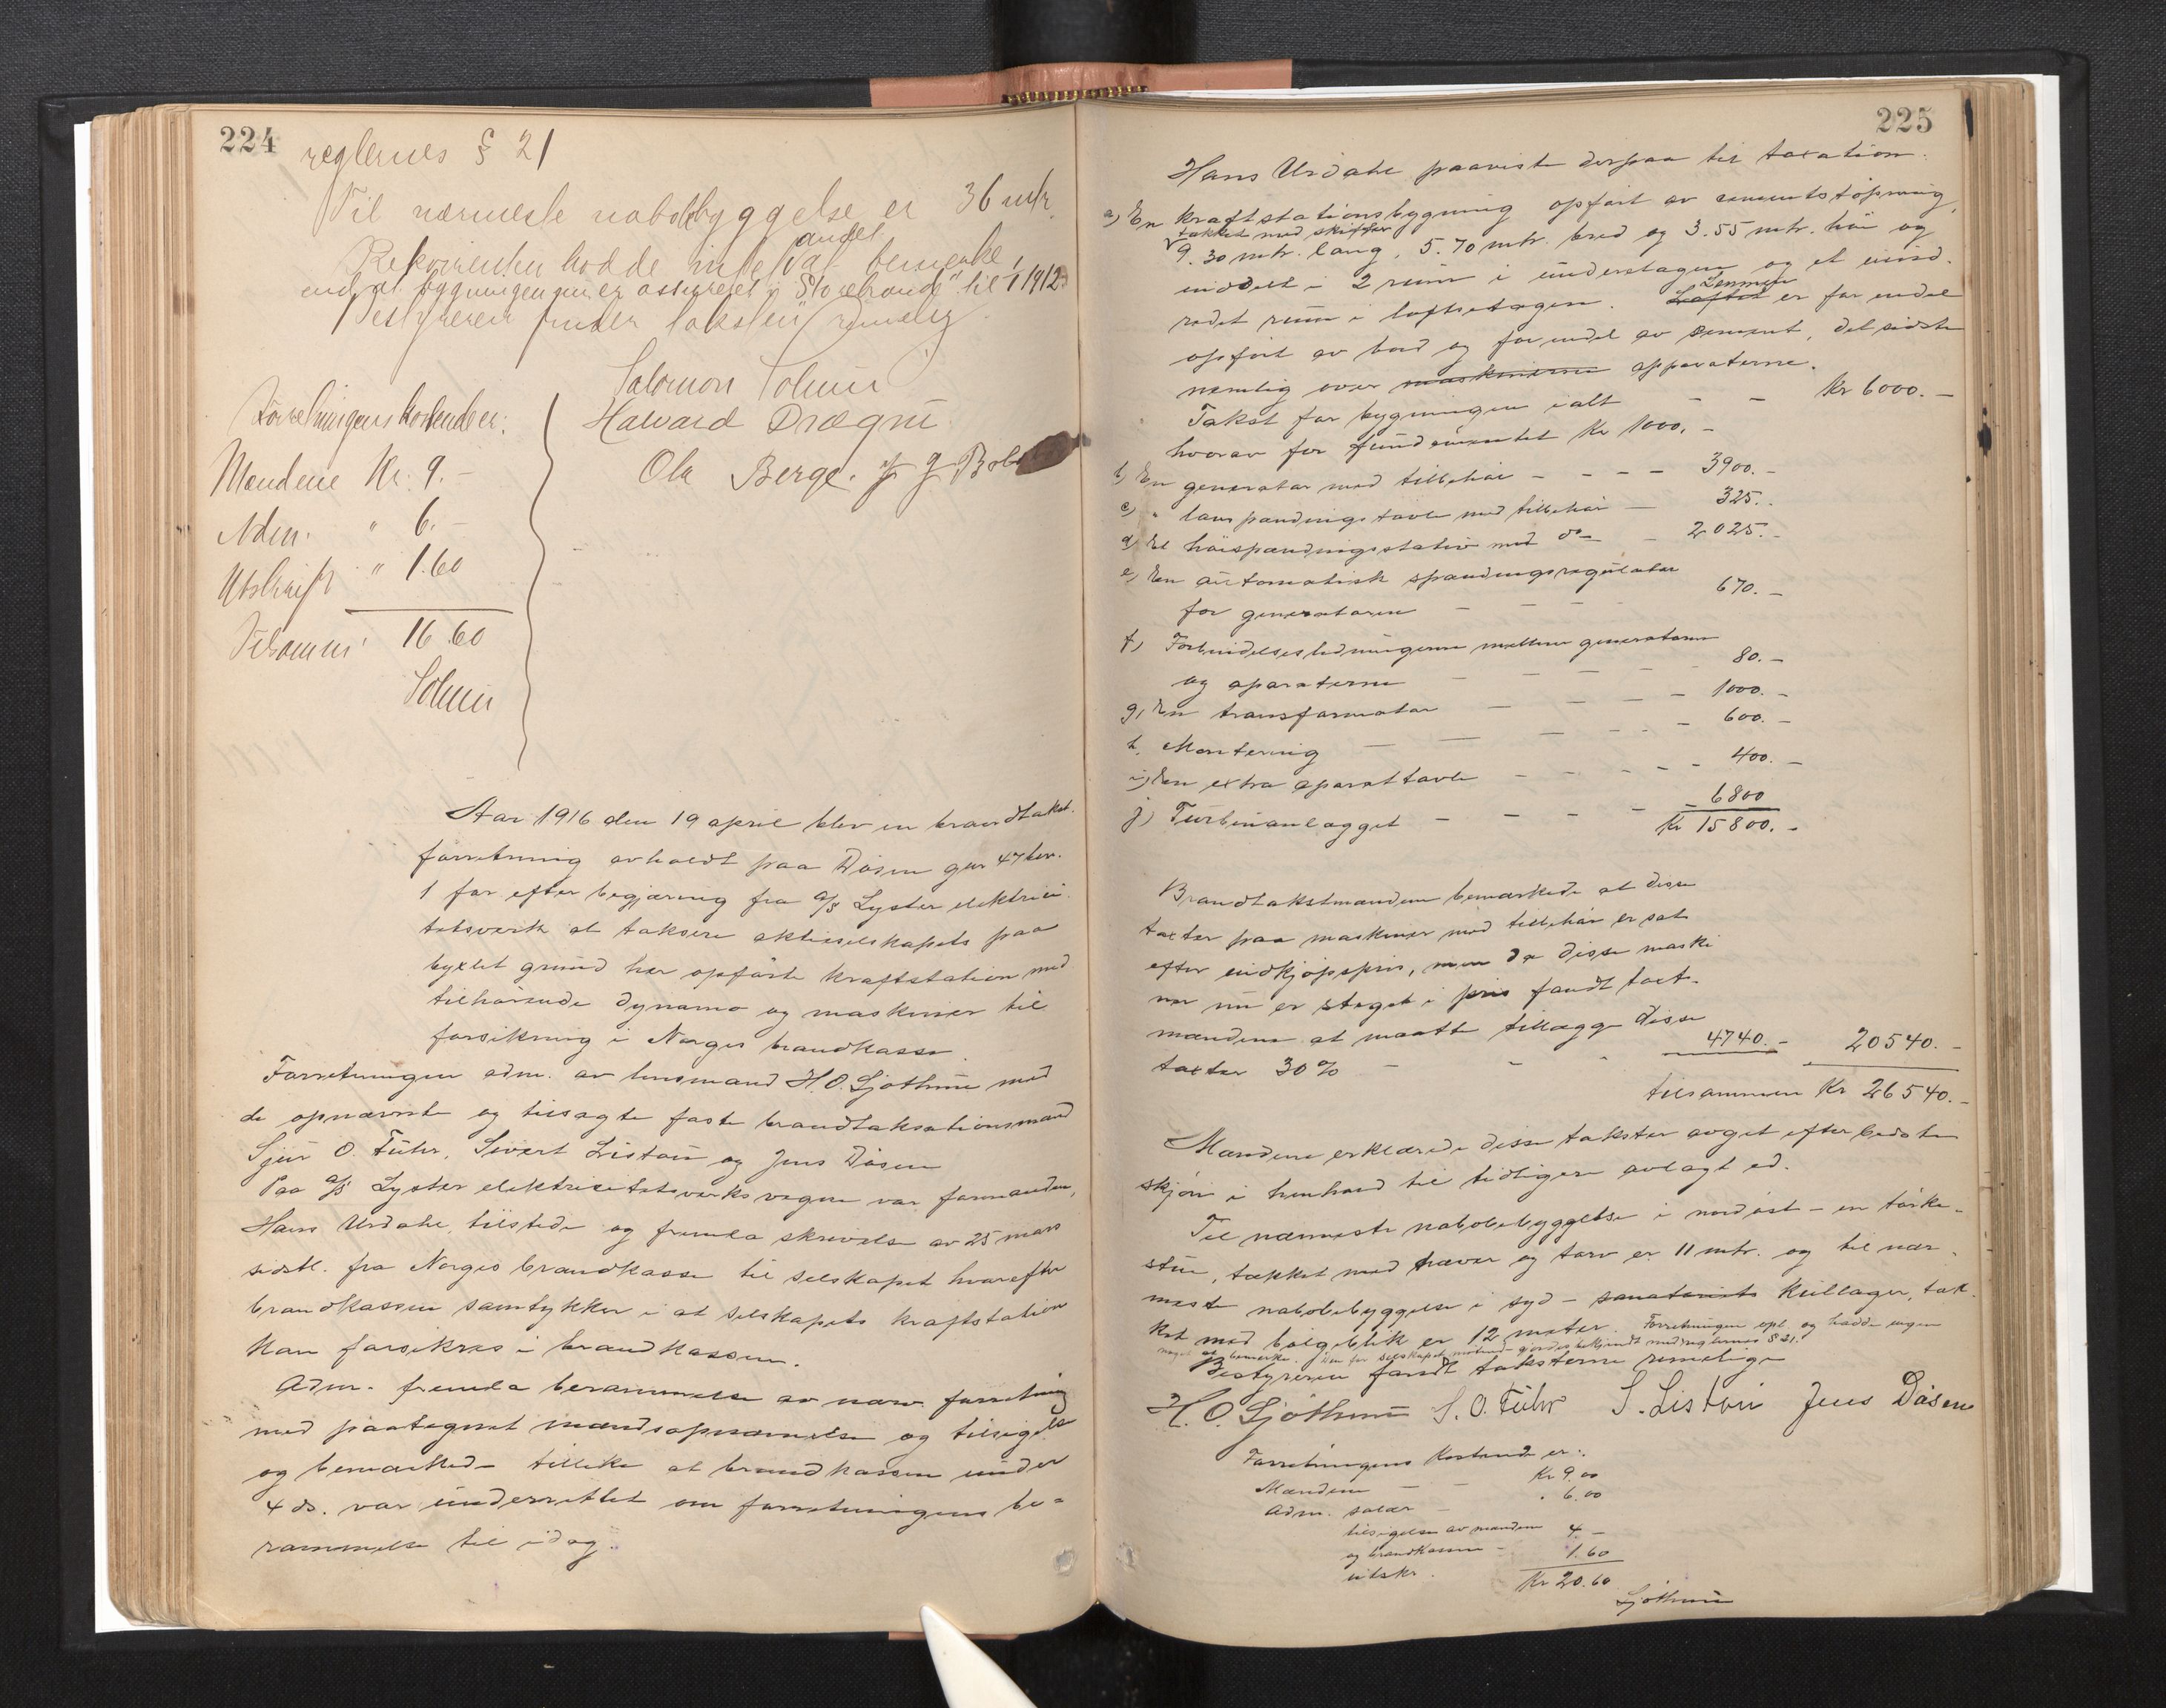 224
reglernes § 21
Til nærmeste nabobebyggelse er 36 mtr.
Rekvirenten hadde intet andet at bemerke,
end at bygningen er assureret i "Storebrand" til 1/1912
Bestyreren finder taksten rimelig
Salomon Solum
Halvard Drægni
Ole Berge. 
Forretningens kostende er:
Mændene Kr. 9.-
Adm. " 6.-
Utskrift " 1.60
Tilsammen 16.60
Solum
Aar 1916 den 19 april blev en brandtakst-
forretning avholdt paa Døsen gnr 47 bnr.
1 for efter begjæring fra A/S Lyster elektrici-
tetsverk at taksere aktieselskapets paa
byxlet grund her opførte kraftstation med
tilhørende dynamo og maskiner til
forsikring i Norges brandkasse.
Forretningen adm. av lensmand H. O. Sjøthun med
de opnævnte og tilsagte faste brandtaksationsmænd
Sjur O. Fuhr, Sivert Listøu og Jens Døsen
Paa A/S Lyster elektricitetsverks vegne var formanden,
Hans Urdahl tilstede og fremla skrivelse av 25 mars
sidstl. fra Norges brandkasse til selskapet hvorefter
brandkassen samtykker i at selskapets kraftstation
kan forsikres i brandkassen.
Adm. fremla berammelse av nærv. forretning
med paategnet mandsopnævnelse og tilsigelse
og bemærked- tillike at brandkassen under
4 ds. var underrettet om forretningens be-
rammelse til idag.
225
Hans Urdahl paaviste derpaa til taxation:
a) En kraftstationsbygning opført av cementstøpning,
takket med skiffer
9.30 mtr. lang, 5.70 mtr. bred og 3.55 mtr. høi og
inddelt i 2 rum i understagen og et uind-
redet rum i loftsetagen. Loftet Lemmen er for endel
opført av bord og for endel av cement, det sidste
nemlig over maskinerne apparaterne.
Takst for bygningen ialt - - Kr 6000.-
hvorav for fundamentet Kr 1000.-
b) En generator med tilbehør - - - - 3900.-
c) " lavspændingstavle med tilbehør - 325.-
d) Et høispændingsstativ med do - - 2025.-
e) En automatisk spændingsregulator
for generatoren - - - 670.-
f) Forbindelsesledningerne mellem generatoren
og aparaterne - - - - 80.-
g) En transformator - - - - 1000.-
h. Montering - - - - - 600.-
i) En extra aparattavle - - - - - 400.-
j) Turbinanlægget - - - - - 6800
Kr 15800.-
Brandtakstmændene bemærkede at disse
taxter paa maskiner med tilbehør er sat
efter indkjøpspris, men da disse maski
ner nu er steget i pris fandt taxt-
mændene at maatte tillægge disse
taxter 30% - - - 4740.- 20540.-
tilsammen Kr 26540.-
Mændene erklærede disse takster avgit efter bedste
skjøn i henhold til tidligere avlagt ed.
Til nærmeste nabobebyggelse i nordøst - en tørke-
stue, takket med næver og torv er 11 mtr. og til nær-
meste nabobebyggelse i syd - sanatoriets kullager, tak-
ket med bølgeblik er 12 meter. Forretningen opl. og hadde ingen
noget at bemerke. Den for selskapet møtende gjordes bekjendt med reglernes § 21.
Bestyreren fandt taksterne rimelige
H. O. Sjøthun S. O. Fuhr S. Listøu Jens Døsen
Forretningens kostende er:
Mændene - - Kr 9.00
Adm. salær - " 6.00
tilsigelse av mændene
og brandkassen - 4.-
utskr. 1.60
Kr 20.60
Sjøthun